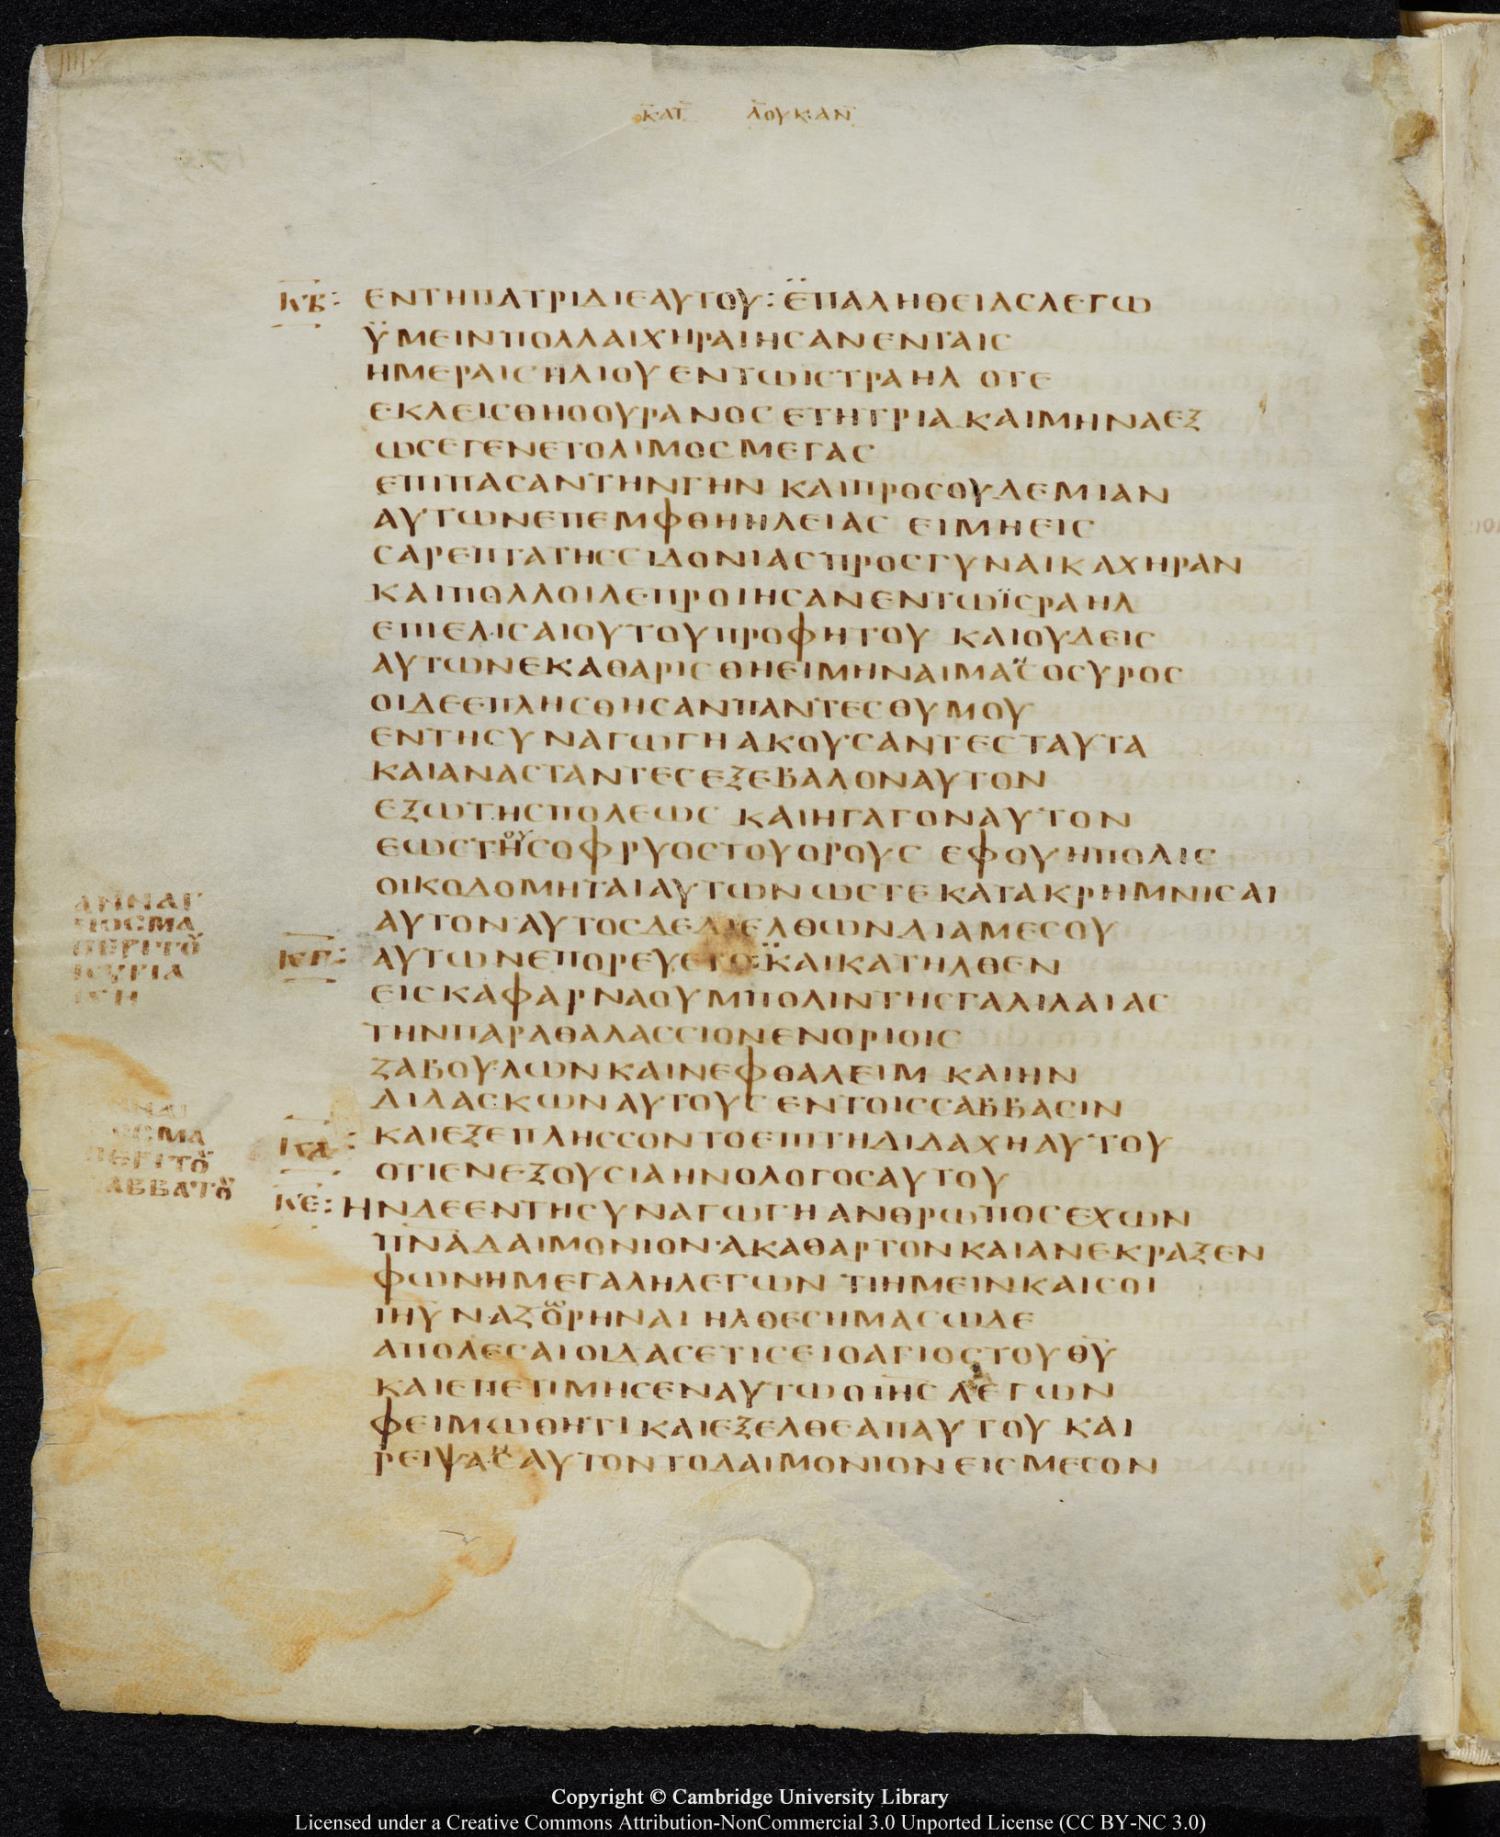 ΚΑΤ ΛΟΥΚΑΝ
ΚΒ: ΕΝΤΗΠΑΤΡΙΔΙΕΑΥΤΟΥ: ΕΠΑΛΗΘΕΙΑΣΛΕΓΩ
ΫΜΕΙΝΠΟΛΛΑΙΧΗΡΑΙΗΣΑΝΕΝΤΑΙΣ
ΗΜΕΡΑΙΣΗΛΙΟΥΕΝΤΩΙΣΤΡΑΗΛ ΟΤΕ
ΕΚΛΕΙΣΘΗΟΟΥΡΑΝΟΣΕΤΗΤΡΙΑΚΑΙΜΗΝΑΕΞ
ΩΣΕΓΕΝΕΤΟΛΙΜΟΣΜΕΓΑΣ
ΕΠΙΠΑΣΑΝΤΗΝΓΗΝ ΚΑΙΠΡΟΣΟΥΔΕΜΙΑΝ
ΑΥΤΩΝΕΠΕΜΦΘΗΗΛΕΙΑΣ ΕΙΜΗΕΙΣ
ΣΑΡΕΠΤΑΤΗΣΣΙΔΟΝΙΑΣΠΡΟΣΓΥΝΑΙΚΑΧΗΡΑΝ
ΚΑΙΠΟΛΛΟΙΛΕΠΡΟΙΗΣΑΝΕΝΤΩΪΣΡΑΗΛ
ΕΠΙΕΛΙΣΑΙΟΥΤΟΥΠΡΟΦΗΤΟΥ ΚΑΙΟΥΔΕΙΣ
ΑΥΤΩΝΕΚΑΘΑΡΙΣΘΗΕΙΜΗΝΑΙΜΑΣΟΣΥΡΟΣ
ΟΙΔΕΕΠΛΗΣΘΗΣΑΝΠΑΝΤΕΣΘΥΜΟΥ
ΕΝΤΗΣΥΝΑΓΩΓΗΑΚΟΥΣΑΝΤΕΣΤΑΥΤΑ
ΚΑΙΑΝΑΣΤΑΝΤΕΣΕΞΕΒΑΛΟΝΑΥΤΟΝ
ΕΞΩΤΗΣΠΟΛΕΩΣ ΚΑΙΗΓΑΓΟΝΑΥΤΟΝ
ΕΩΣΤΗΣΟΦΡΥΟΣΤΟΥΟΡΟΥΣ ΕΦΟΥΗΠΟΛΙΣ
ΟΙΚΟΔΟΜΗΤΑΙΑΥΤΩΝΩΣΤΕΚΑΤΑΚΡΗΜΝΙΣΑΙ
ΑΥΤΟΝ·ΑΥΤΟΣΔΕΔΙΕΛΘΩΝΔΙΑΜΕΣΟΥ
ΚΓ: ΑΥΤΩΝΕΠΟΡΕΥΕΤΟ:ΚΑΙΚΑΤΗΛΘΕΝ
ΕΙΣΚΑΦΑΡΝΑΟΥΜΠΟΛΙΝΤΗΣΓΑΛΙΛΑΙΑΣ
ΤΗΝΠΑΡΑΘΑΛΑΣΣΙΟΝΕΝΟΡΙΟΙΣ
ΖΑΒΟΥΛΩΝΚΑΙΝΕΦΘΑΛΕΙΜ ΚΑΙΗΝ
ΔΙΔΑΣΚΩΝΑΥΤΟΥΣ ΕΝΤΟΙΣΣΑΒΒΑΣΙΝ
ΚΔ: ΚΑΙΕΞΕΠΛΗΣΣΟΝΤΟΕΠΙΤΗΔΙΔΑΧΗΑΥΤΟΥ
ΟΤΙΕΝΕΞΟΥΣΙΑΗΝΟΛΟΓΟΣΑΥΤΟΥ
ΚΕ: ΗΝΔΕΕΝΤΗΣΥΝΑΓΩΓΗΑΝΘΡΩΠΟΣΕΧΩΝ
ΠΝΑΔΑΙΜΟΝΙΟΝ·ΑΚΑΘΑΡΤΟΝΚΑΙΑΝΕΚΡΑΞΕΝ
ΦΩΝΗΜΕΓΑΛΗΛΕΓΩΝ ΤΙΗΜΕΙΝΚΑΙΣΟΙ
ΙΗΥ ΝΑΖΟΡΗΝΑΙ ΗΛΘΕΣΗΜΑΣΩΔΕ
ΑΠΟΛΕΣΑΙΟΙΔΑΣΕΤΙΣΕΙΟΑΓΙΟΣΤΟΥΘΥ
ΚΑΙΕΠΕΤΙΜΗΣΕΝΑΥΤΩΟΙΗΣ ΛΕΓΩΝ
ΦΕΙΜΩΘΗΤΙΚΑΙΕΞΕΛΘΕΑΠΑΥΤΟΥ ΚΑΙ
ΡΕΙΨΑΣΑΥΤΟΝΤΟΔΑΙΜΟΝΙΟΝΕΙΣΜΕΣΟΝ
ΑΝΝΑΓ
ΝΟΣΜΑ
ΠΕΡΙΤΟ
ΣΜΑ
ΠΕΡΙΤΟ
ΣΑΒΒΑΤΟ
Copyright © Cambridge University Library
Licensed under a Creative Commons Attribution-NonCommercial 3.0 Unported License (CC BY-NC 3.0)